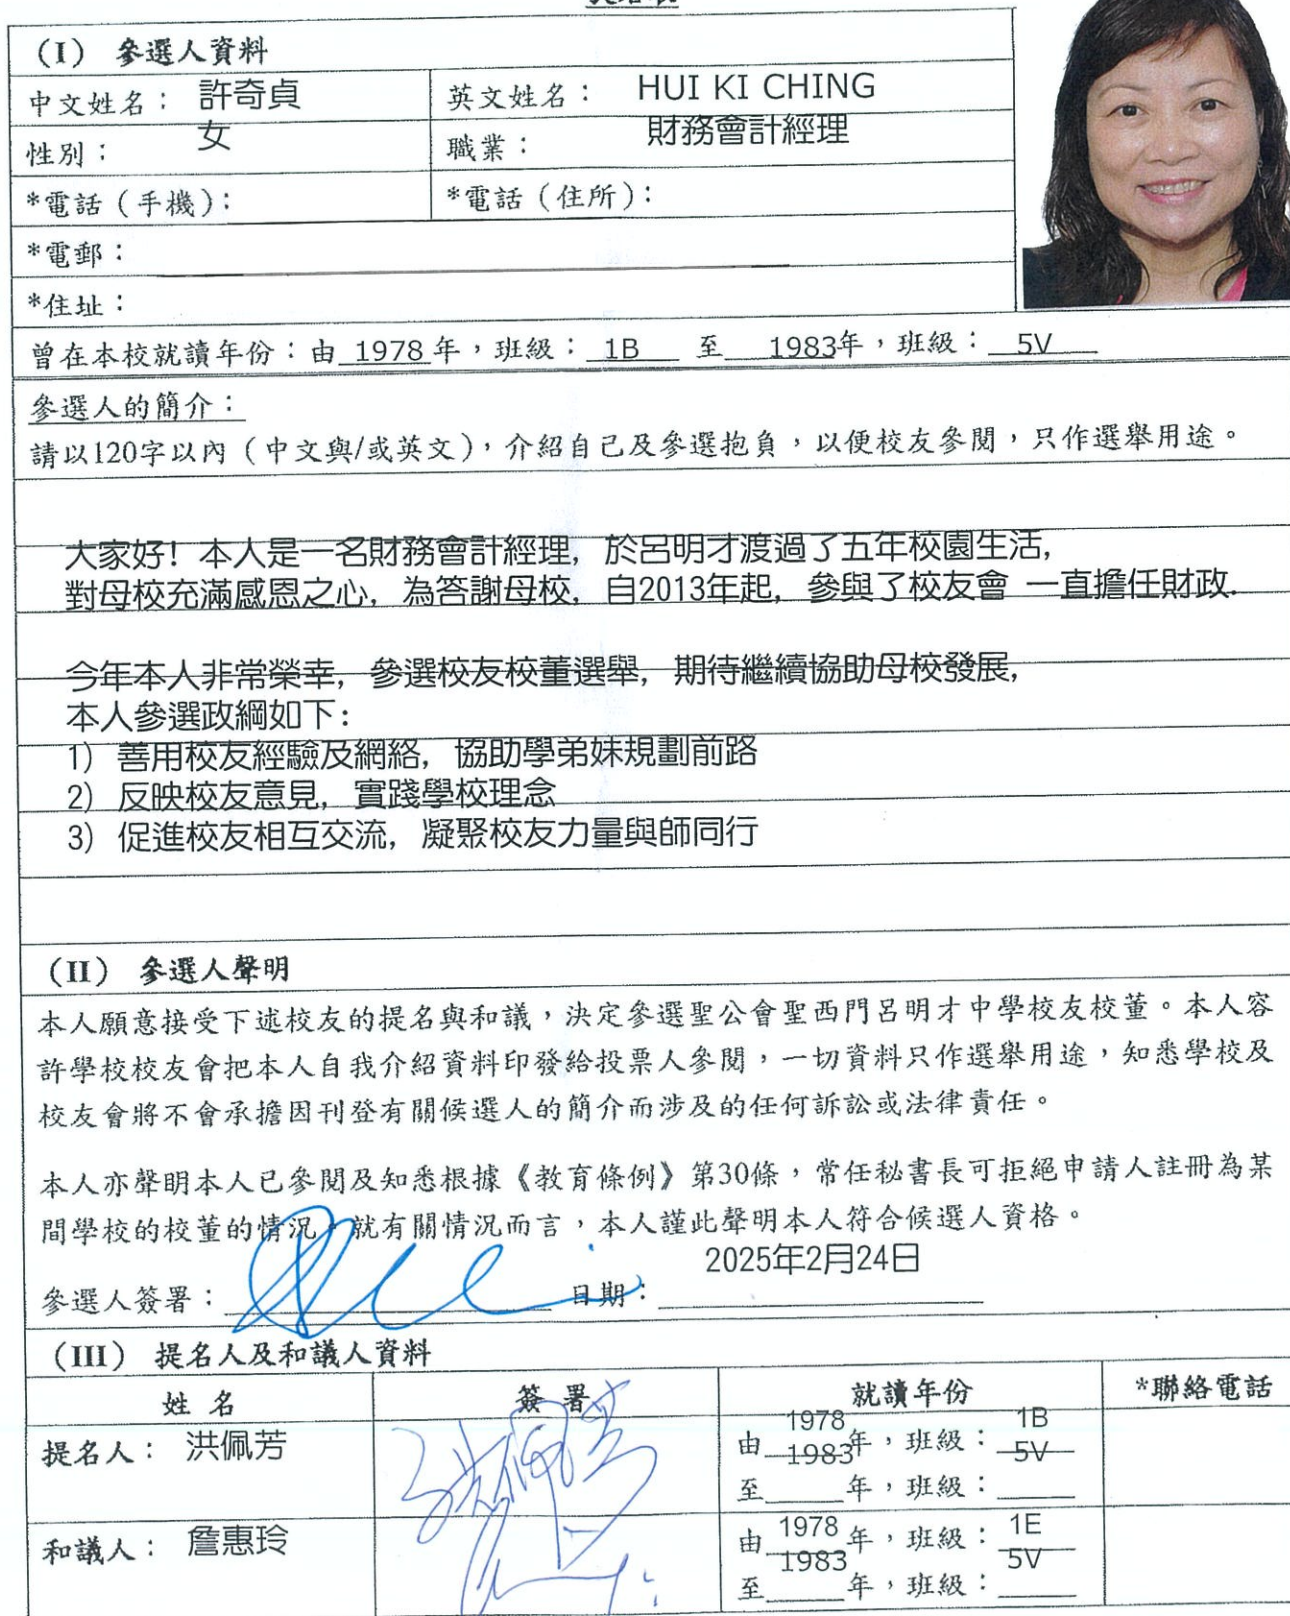 (I) 參選人資料
中文姓名： 許奇貞 英文姓名： HUI KI CHING
性別： 女 職業： 財務會計經理
*電話（手機）： *電話（住所）：
*電郵：
*住址：
曾在本校就讀年份：由 1978 年，班級： 1B 至 1983年，班級： 5V
參選人的簡介：
請以120字以內（中文與/或英文），介紹自己及參選抱負，以便校友參閱，只作選舉用途。
大家好！本人是一名財務會計經理，於呂明才渡過了五年校園生活，
對母校充滿感恩之心，為答謝母校，自2013年起，參與了校友會 一直擔任財政.
今年本人非常榮幸，參選校友校董選舉，期待繼續協助母校發展，
本人參選政綱如下：
1) 善用校友經驗及網絡，協助學弟妹規劃前路
2) 反映校友意見，實踐學校理念
3) 促進校友相互交流，凝聚校友力量與師同行
(II) 參選人聲明
本人願意接受下述校友的提名與和議，決定參選聖公會聖西門呂明才中學校友校董。本人容
許學校校友會把本人自我介紹資料印發給投票人參閱，一切資料只作選舉用途，知悉學校及
校友會將不會承擔因刊登有關候選人的簡介而涉及的任何訴訟或法律責任。
本人亦聲明本人已參閱及知悉根據《教育條例》第30條，常任秘書長可拒絕申請人註冊為某
間學校的校董的情況。就有關情況而言，本人謹此聲明本人符合候選人資格。
參選人簽署： 日期： 2025年2月24日
(III) 提名人及和議人資料
姓 名 簽 署 就讀年份 *聯絡電話
提名人： 洪佩芳 洪佩芳 由 1978 年，班級： 1B
至 1983 年，班級： 5V
和議人： 詹惠玲 由 1978 年，班級： 1E
至 1983 年，班級： 5V